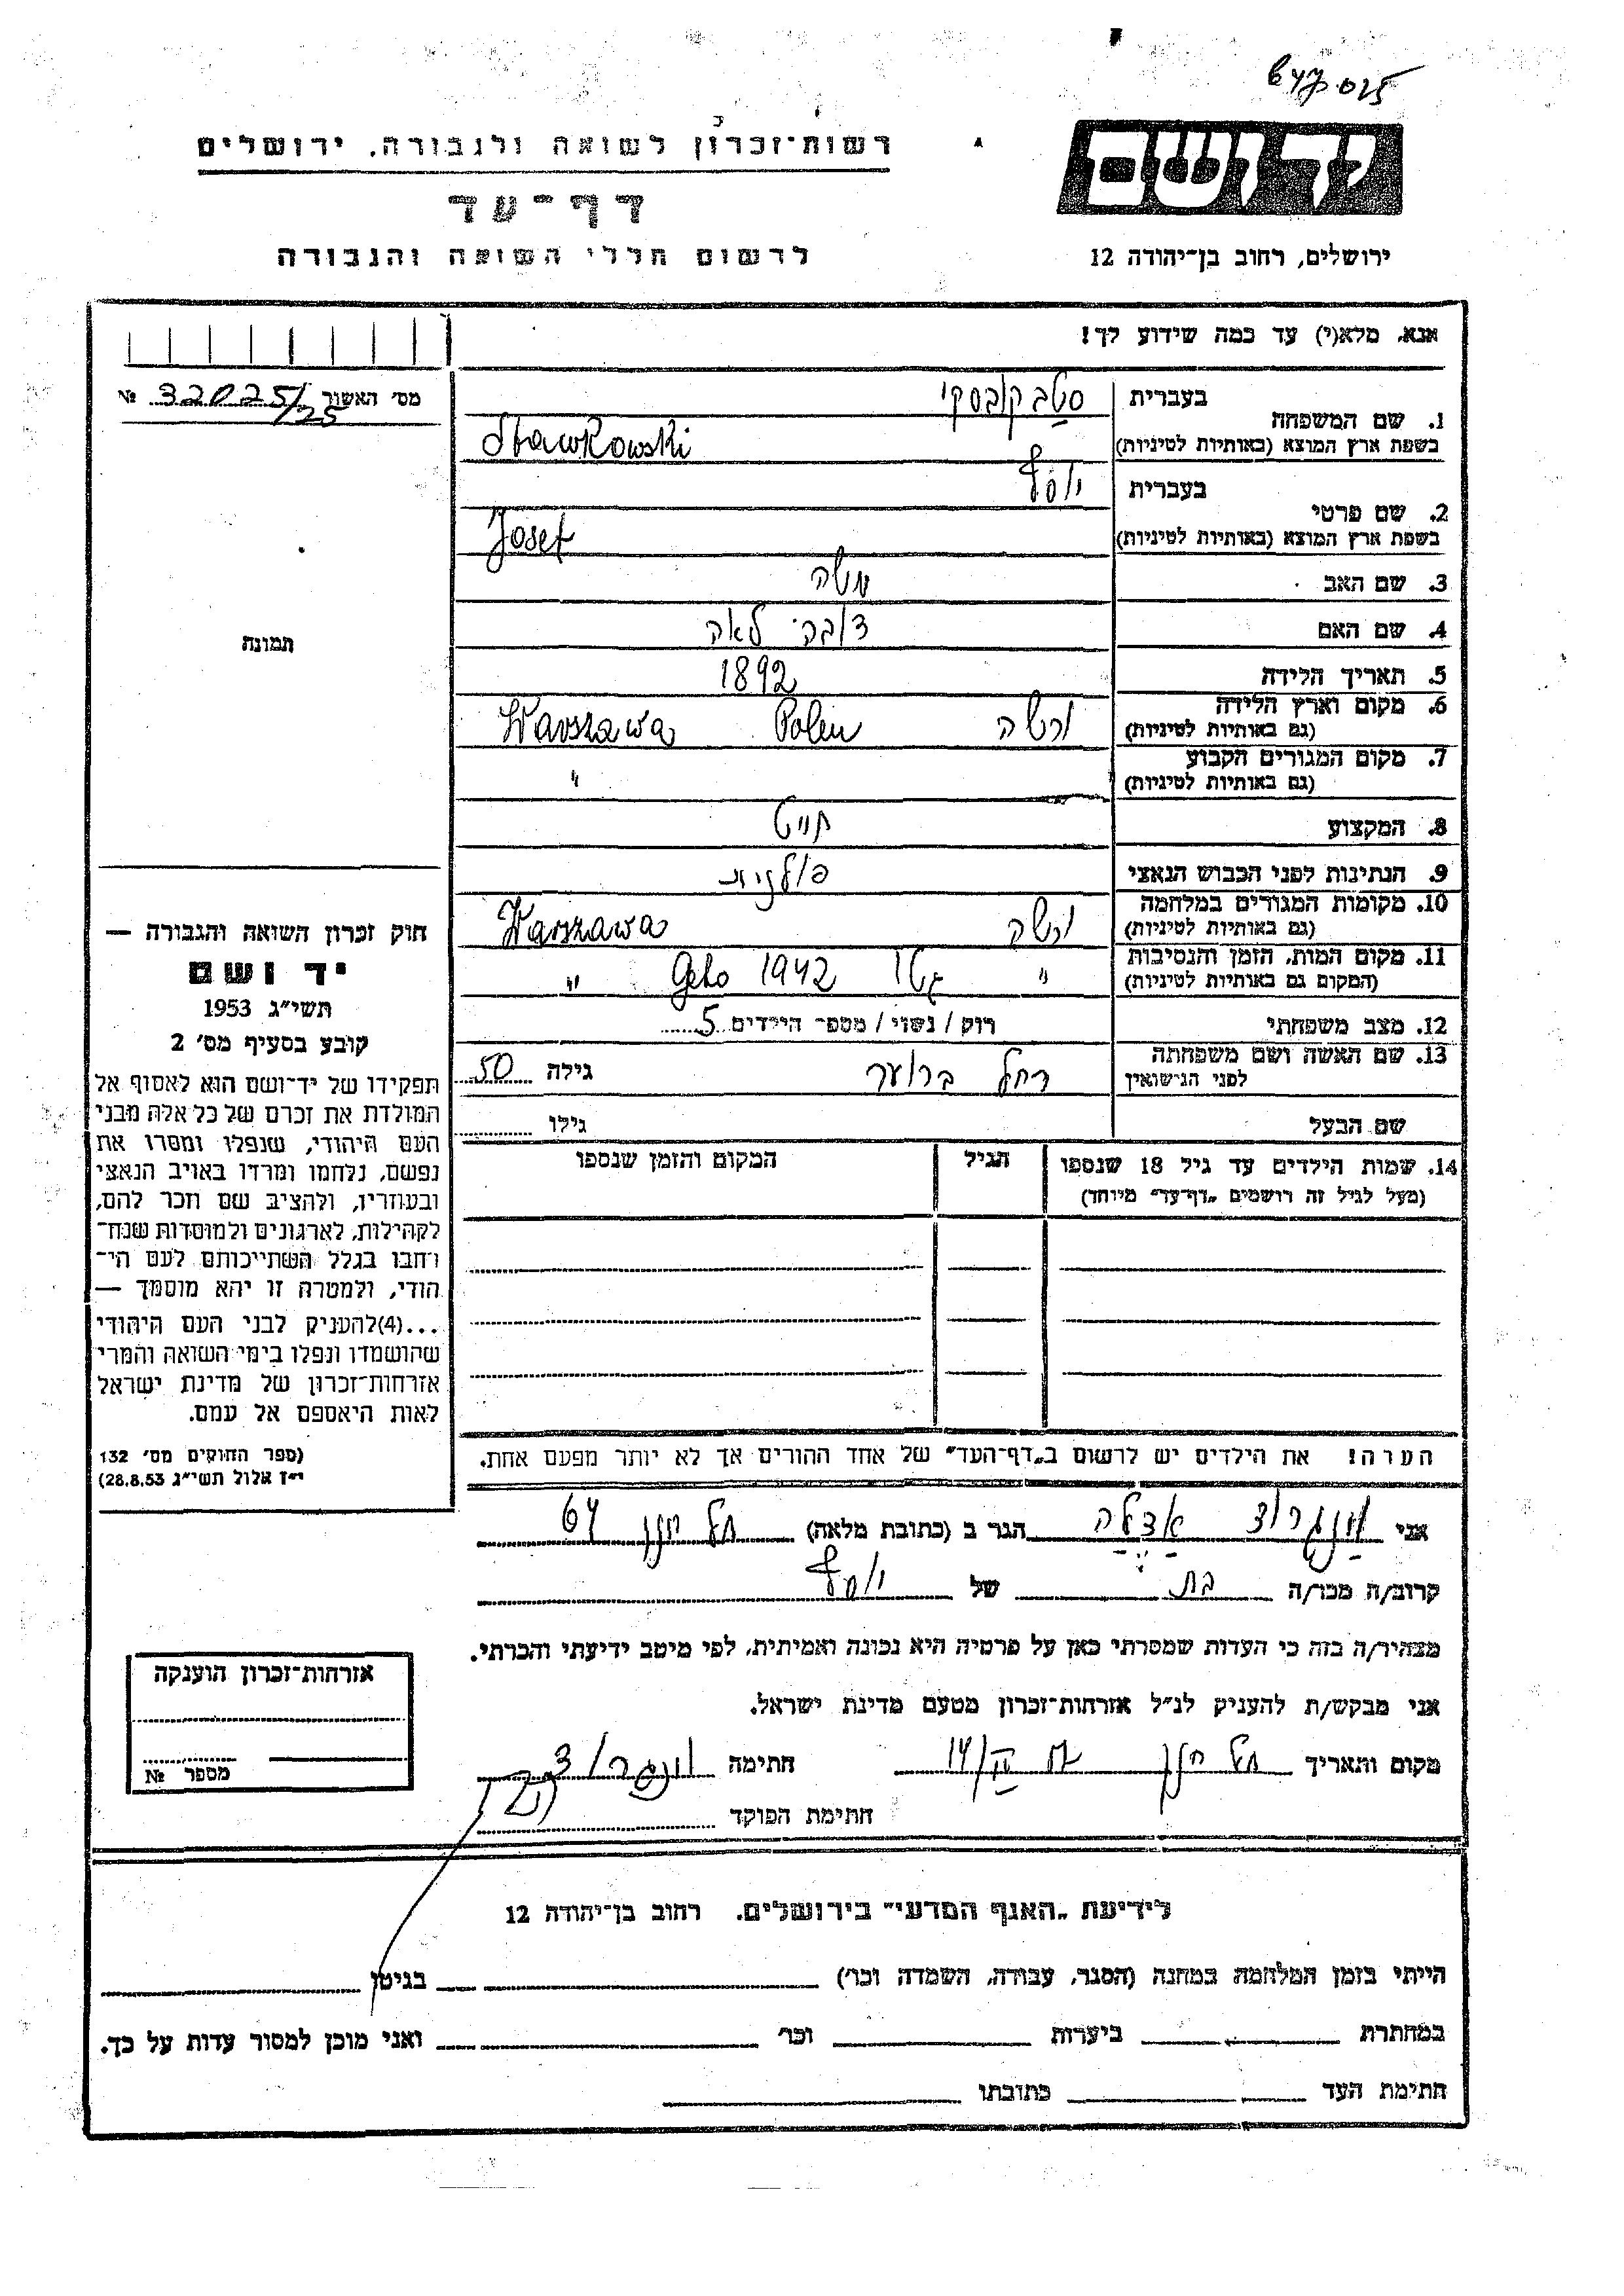 רשות־זכרון לשואה ולגבורה, ירושלים
דף־עד
לרשום חללי השואה והגבורה
יד ושם
ירושלים, רחוב בן־יהודה 12
אנא, מלא(י) עד כמה שידוע לך!
מס' האשור 32025/25 №
1. שם המשפחה
בעברית סטבקובסקי
בשפת ארץ המוצא (באותיות לטיניות) Stawkowski
2. שם פרטי
בעברית יוסף
בשפת ארץ המוצא (באותיות לטיניות) Josef
3. שם האב משה
4. שם האם לאה
5. תאריך הלידה 1892
6. מקום וארץ הלידה (גם באותיות לטיניות) ורשה Polen Warszawa
7. מקום המגורים הקבוע (גם באותיות לטיניות) "
8. המקצוע חייט
9. הנתינות לפני הכבוש הנאצי פולנית
10. מקומות המגורים במלחמה (גם באותיות לטיניות) ורשה Warszawa
11. מקום המות, הזמן והנסיבות (המקום גם באותיות לטיניות) " גטו 1942 Geto "
12. מצב משפחתי רוק / נשוי / מספר הילדים 5
13. שם האשה ושם משפחתה לפני הנישואין רחל ברוער גילה 50
שם הבעל גילו
14. שמות הילדים עד גיל 18 שנספו (מעל לגיל זה רושמים „דף־עד" מיוחד)
הגיל
המקום והזמן שנספו
הערה! את הילדים יש לרשום ב„דף־העד" של אחד ההורים אך לא יותר מפעם אחת.
תמונה
חוק זכרון השואה והגבורה —
יד ושם
תשי"ג 1953
קובע בסעיף מס' 2
תפקידו של יד־ושם הוא לאסוף אל
המולדת את זכרם של כל אלה מבני
העם היהודי, שנפלו ומסרו את
נפשם, נלחמו ומרדו באויב הנאצי
ובעוזריו, ולהציב שם וזכר להם,
לקהילות, לארגונים ולמוסדות שנח־
רחבו בגלל השתייכותם לעם הי־
הודי, ולמטרה זו יהא מוסמך —
...(4)להעניק לבני העם היהודי
שהושמדו ונפלו בימי השואה והמרי
אזרחות־זכרון של מדינת ישראל
לאות היאספם אל עמם.
(ספר החוקים מס' 132
י"ז אלול תשי"ג 28.8.53)
אני אדלה הגר ב (כתובת מלאה) תל חנן 64
קרוב/ה מכר/ה בת של יוסף
מצהיר/ה בזה כי העדות שמסרתי כאן על פרטיה היא נכונה ואמיתית, לפי מיטב ידיעתי והכרתי.
אני מבקש/ת להעניק לנ"ל אזרחות־זכרון מטעם מדינת ישראל.
מקום ותאריך תל חנן חתימה
חתימת הפוקד
אזרחות־זכרון הוענקה
מספר №
לידיעת „האגף המדעי" בירושלים. רחוב בן־יהודה 12
הייתי בזמן המלחמה במחנה (הסגר, עבודה, השמדה וכו') בגיטו
במחתרת ביערות וכו' ואני מוכן למסור עדות על כך.
חתימת העד כתובתו